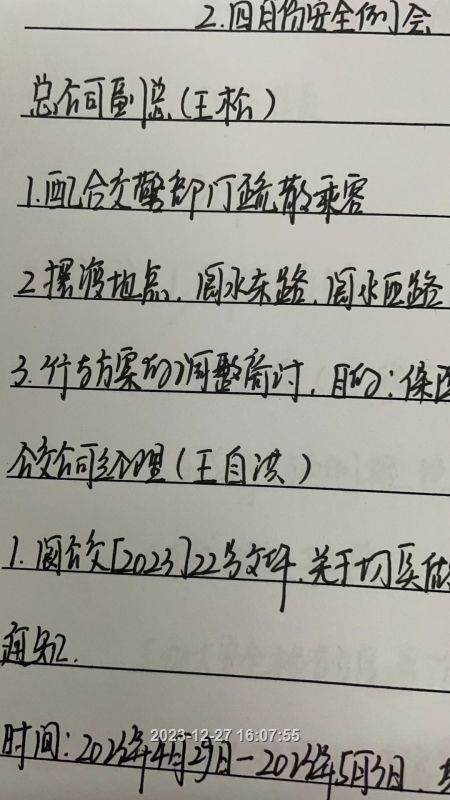 2.四月份安全例会
总公司副总(王松)
1.配合交警部门疏散乘客
2.摆渡地点.阆水东路.阆水西路
3.行车方案的调整商讨.目的:保
公交公司经理(王自洪)
1.阆公交[2023]22号文件.关于切实做
通知.
时间:2023年4月29日-2023年5月3日.
2023-12-27 16:07:55